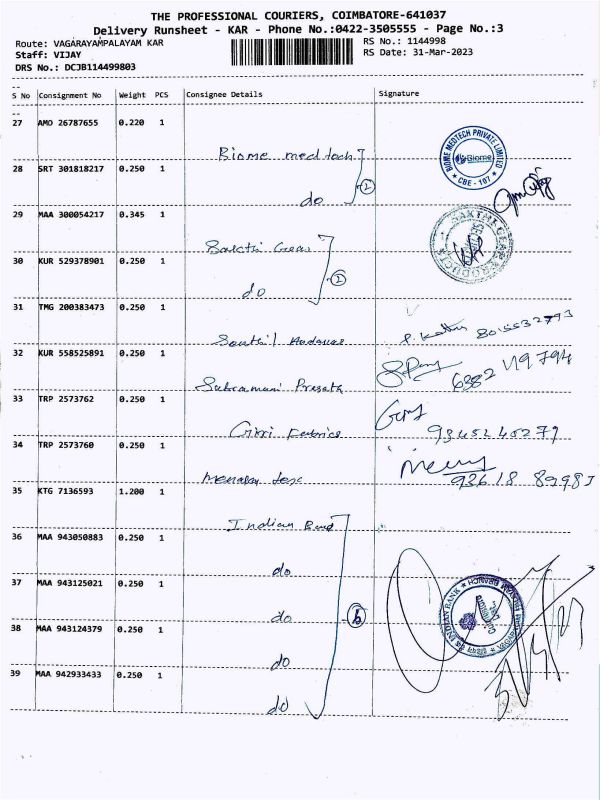 THE PROFESSIONAL COURIERS, COIMBATORE-641037
Delivery Runsheet - KAR - Phone No.:0422-3505555 - Page No.:3
Route: VAGARAYAMPALAYAM KAR
RS No.: 1144998
Staff: VIJAY
RS Date: 31-Mar-2023
DRS No.: DCJB114499803
S No Consignment No Weight PCS Consignee Details Signature
27 AMO 26787655 0.220 1
Biome medtech
BIOME MEDTECH PRIVATE LIMITED
Biome
CBE - 107
28 SRT 301818217 0.250 1
do
2
29 MAA 300054217 0.345 1
Sakthi Gear
SAKTHI GEAR PRODUCTS
30 KUR 529378901 0.250 1
do
2
31 TMG 200383473 0.250 1
8015532793
32 KUR 558525891 0.250 1
6382 119794
33 TRP 2573762 0.250 1
Giri Fabrics
9345245279
34 TRP 2573760 0.250 1
93618 89985
35 KTG 7136593 1.200 1
Indian Bank
36 MAA 943050883 0.250 1
do
37 MAA 943125021 0.250 1
do
INDIAN BANK
38 MAA 943124379 0.250 1
do
39 MAA 942933433 0.250 1
do